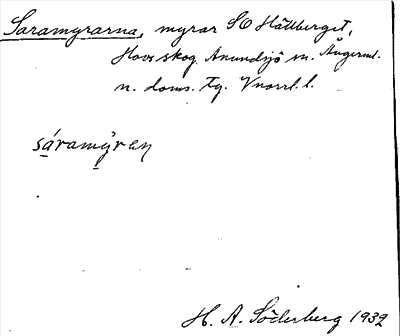 Saramyrarna, myrar SO Hällberget,
Hovs skog Anundsjö sn. Ångerml.
n. doms. Tg. Vnorrl. l.
sáramýren
H. A. Söderberg 1932